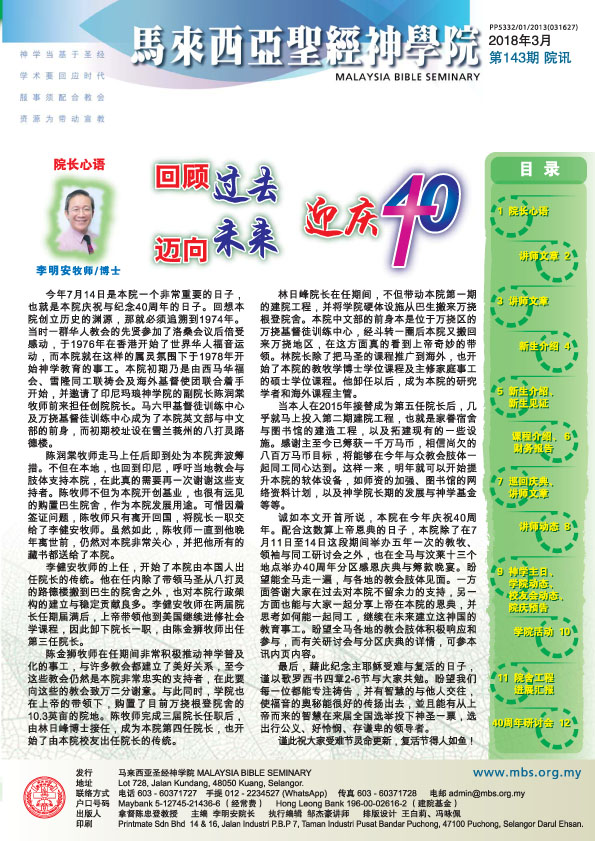 神学当基于圣经
学术要回应时代
服事须配合教会
资源为带动宣教
馬來西亞聖經神學院
MALAYSIA BIBLE SEMINARY
PP5332/01/2013(031627)
2018年3月
第143期 院讯
院长心语
李明安牧师/博士
回顾过去
迈向未来
迎庆40
今年7月14日是本院一个非常重要的日子，
也就是本院庆祝与纪念40周年的日子。回想本
院创立历史的渊源，那就必须追溯到1974年。
当时一群华人教会的先贤参加了洛桑会议后倍受
感动，于1976年在香港开始了世界华人福音运
动，而本院就在这样的属灵氛围下于1978年开
始神学教育的事工。本院初期乃是由西马华福
会、雪隆同工联祷会及海外基督使团联合着手
开始，并邀请了印尼玛琅神学院的副院长陈润棠
牧师前来担任创院院长。马六甲基督徒训练中心
及万挠基督徒训练中心成为了本院英文部与中文
部的前身，而初期校址设在雪兰莪州的八打灵路
德楼。
陈润棠牧师走马上任后即到处为本院奔波筹
措。不但在本地，也回到印尼，呼吁当地教会与
肢体支持本院，在此真的需要再一次谢谢这些支
持者。陈牧师不但为本院开创基业，也很有远见
的购置巴生院舍，作为本院发展用途。可惜因着
签证问题，陈牧师只有离开回国，将院长一职交
给了李健安牧师。虽然如此，陈牧师一直到他晚
年离世前，仍然对本院非常关心，并把他所有的
藏书都送给了本院。
李健安牧师的上任，开始了本院由本国人出
任院长的传统。他在任内除了带领马圣从八打灵
的路德楼搬到巴生的院舍之外，也对本院行政架
构的建立与稳定贡献良多。李健安牧师在两届院
长任期届满后，上帝带领他到美国继续进修社会
学课程，因此卸下院长一职，由陈金狮牧师出任
第三任院长。
陈金狮牧师在任期间非常积极推动神学普及
化的事工，与许多教会都建立了美好关系，至今
这些教会仍然是本院非常忠实的支持者，在此要
向这些的教会致万二分谢意。与此同时，学院也
在上帝的带领下，购置了目前万挠根登院舍的
10.3英亩的院地。陈牧师完成三届院长任职后，
由林日峰博士接任，成为本院第四任院长，也开
始了由本院校友出任院长的传统。
林日峰院长在任期间，不但带动本院第一期
的建院工程，并将学院硬体设施从巴生搬来万挠
根登院舍。本院中文部的前身本是位于万挠区的
万挠基督徒训练中心，经斗转一圈后本院又搬回
来万挠地区，在这方面真的看到上帝奇妙的带
领。林院长除了把马圣的课程推广到海外，也开
始了本院的教牧学博士学位课程及主修家庭事工
的硕士学位课程。他卸任以后，成为本院的研究
学者和海外课程主管。
当本人在2015年接替成为第五任院长后，几
乎就马上投入第二期建院工程，也就是家眷宿舍
与图书馆的建造工程，以及拓建现有的一些设
施。感谢主至今已筹获一千万马币，相信尚欠的
八百万马币目标，将能够在今年与众教会肢体一
起同工同心达到。这样一来，明年就可以开始提
升本院的软体设备，如师资的加强、图书馆的网
络资料计划，以及神学院长期的发展与神学基金
等等。
诚如本文开首所说，本院在今年庆祝40周
年。配合这数算上帝恩典的日子，本院除了在7
月11日至14日这段期间举办五年一次的教牧、
领袖与同工研讨会之外，也在全马与汶莱十三个
地点举办40周年分区感恩庆典与筹款晚宴。盼
望能全马走一遍，与各地的教会肢体见面。一方
面答谢大家在过去对本院不留余力的支持，另一
方面也能与大家一起分享上帝在本院的恩典，并
思考如何能一起同工，继续在未来建立这神国的
教育事工。盼望全马各地的教会肢体积极响应和
参与，而有关研讨会与分区庆典的详情，可参本
讯内页内容。
最后，藉此纪念主耶稣受难与复活的日子，
谨以歌罗西书四章2-6节与大家共勉。盼望我们
每一位都能专注祷告，并有智慧的与他人交往，
使福音的奥秘能很好的传扬出去，并且能有从上
帝而来的智慧在来届全国选举投下神圣一票，选
出行公义、好怜悯、存谦卑的领导者。
谨此祝大家受难节灵命更新，复活节得人如鱼！
目 录
1 院长心语
讲师文章 2
3 讲师文章
新生介绍 4
5 新生介绍、
新生见证
课程介绍、 6
财务报告
7 巡回庆典、
讲师文章
讲师动态 8
9 神学主日、
学院动态、
校友会动态、
院庆预告
学院活动 10
11 院舍工程
进展汇报
40周年研讨会 12
www.mbs.org.my
发行 马来西亚圣经神学院 MALAYSIA BIBLE SEMINARY
地址 Lot 728, Jalan Kundang, 48050 Kuang, Selangor.
联络方式 电话 603 - 60371727 手提 012 - 2234527 (WhatsApp) 传真 603 - 60371728 电邮 admin@mbs.org.my
户口号码 Maybank 5-12745-21436-6（经常费） Hong Leong Bank 196-00-02616-2（建院基金）
出版人 拿督陈忠登教授 主编 李明安院长 执行编辑 邹杰豪讲师 排版设计 王白莉、冯咏佩
印刷 Printmate Sdn Bhd 14 & 16, Jalan Industri P.B.P 7, Taman Industri Pusat Bandar Puchong, 47100 Puchong, Selangor Darul Ehsan.